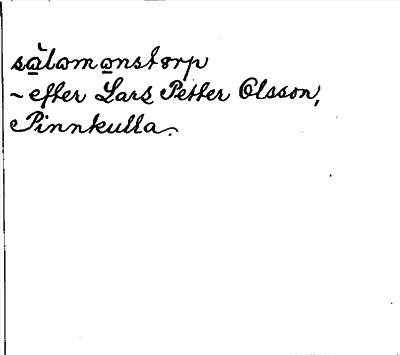 sà̱lomo̱nstorp
~ efter Lars Petter Olsson,
Pinnkulla.